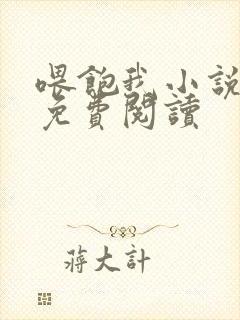 喂飽我小說
免費閱讀
蔣大計